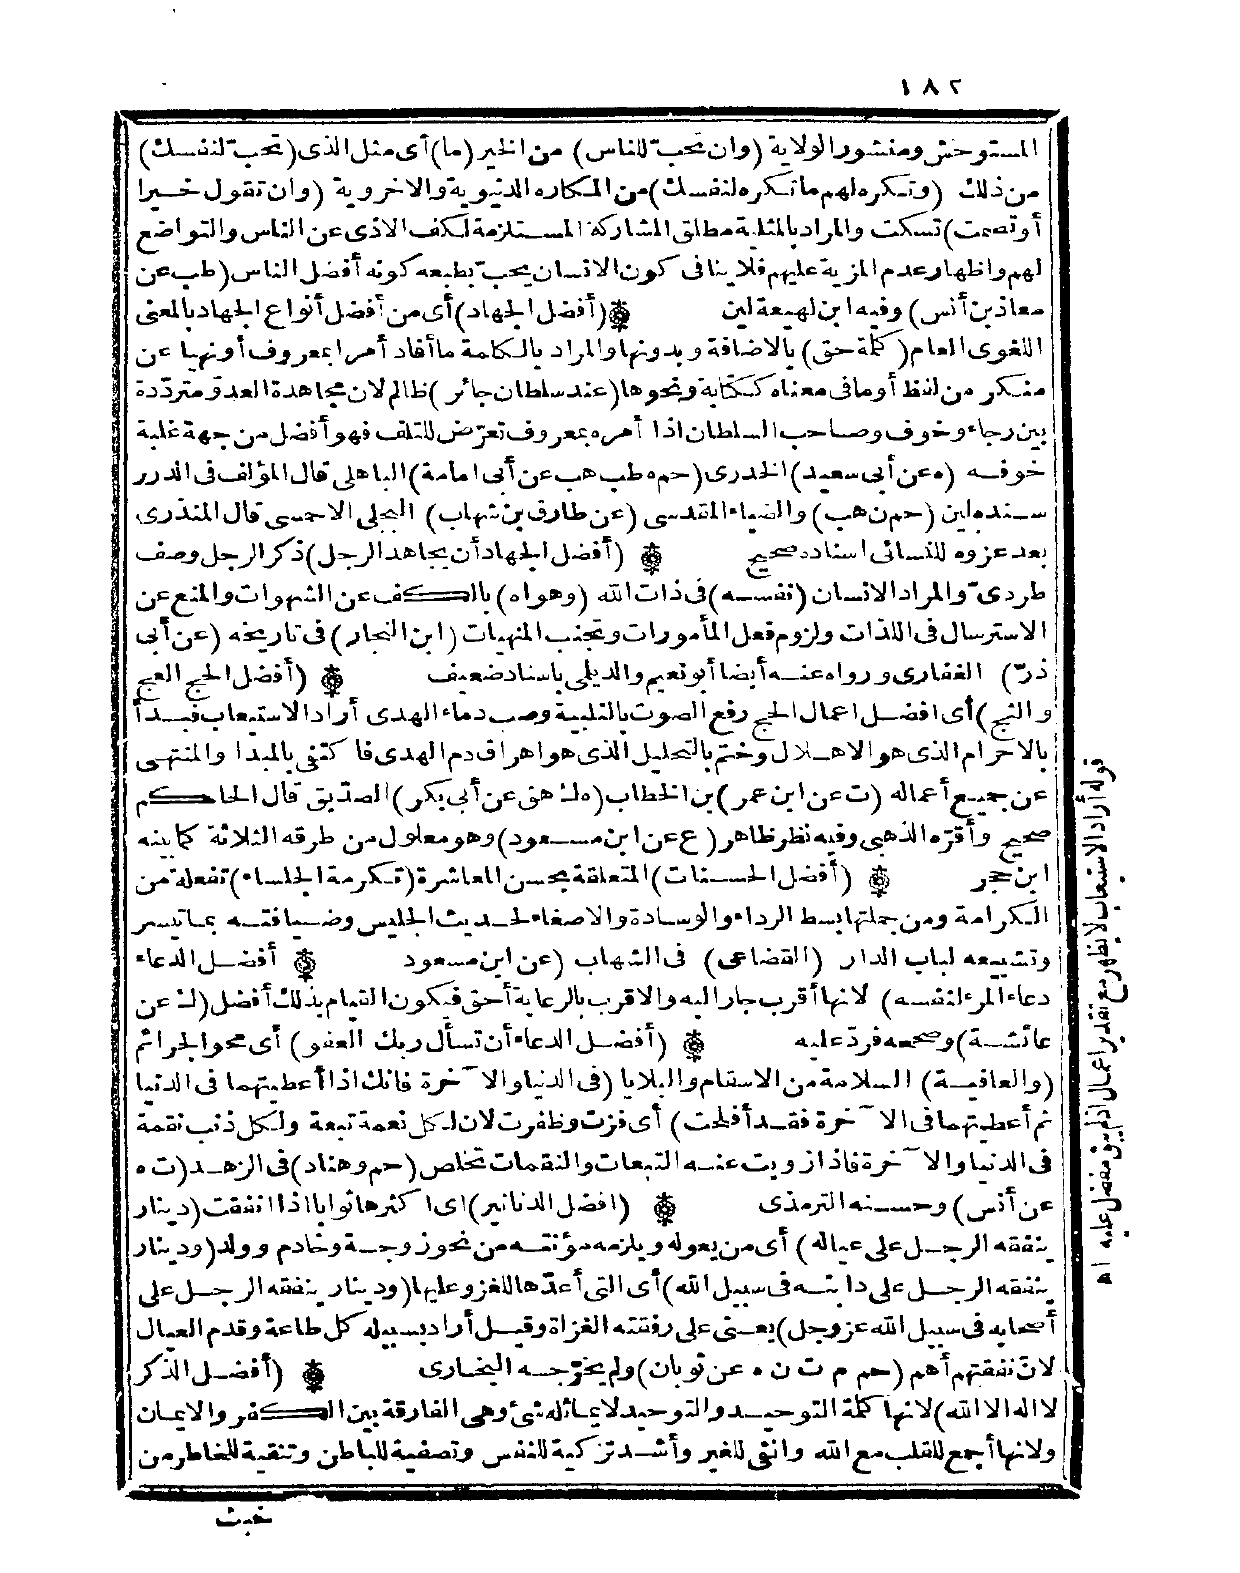 ١٨٢
المستوحش ومنشور الولاية (وان تحب للناس) من الخير (ما) أى مثل الذى (تحب لنفسك)
من ذلك (وتكره لهم ما تكره لنفسك) من المكاره الدنيوية والاخروية (وان تقول خيرا
أو تصمت) تسكت والمراد بالمثلية مطلق المشاركة المستلزمة لكف الاذى عن الناس والتواضع
لهم واظهار عدم المزية عليهم فلا ينافى كون الانسان يحب بطبعه كونه أفضل الناس (طب عن
معاذ بن أنس) وفيه ابن لهيعة لين (أفضل الجهاد) أى من أفضل أنواع الجهاد بالمعنى
اللغوى العام (كلمة حق) بالاضافة وبدونها والمراد بالكلمة ما أفاد أمرا بمعروف أو نهيا عن
منكر من لفظ أو ما فى معناه ككتابة ونحوها (عند سلطان جائر) ظالم لان مجاهدة العدو مترددة
بين رجاء وخوف وصاحب السلطان اذا أمره بمعروف تعرّض للتلف فهو أفضل من جهة غلبة
خوفه (ه عن أبى سعيد) الخدرى (حم ه طب هب عن أبى امامة) الباهلى قال المؤلف فى الدرر
سنده لين (حم ن هب) والضياء المقدسى (عن طارق بن شهاب) البجلى الاحمسى قال المنذرى
بعد عزوه للنسائى اسناده صحيح (أفضل الجهاد أن يجاهد الرجل) ذكر الرجل وصف
طردىّ والمراد الانسان (نفسه) فى ذات الله (وهواه) بالكف عن الشهوات والمنع عن
الاسترسال فى اللذات ولزوم فعل المأمورات وتجنب المنهيات (ابن النجار) فى تاريخه (عن أبى
ذرّ) الغفارى ورواه عنه أيضا أبو نعيم والديلى باسناد ضعيف (أفضل الحج العج
والثج) أى افضل اعمال الحج رفع الصوت بالتلبية وصب دماء الهدى أراد الاستيعاب فبدأ
بالاحرام الذى هو الاهلال وختم بالتحليل الذى هو اهراق دم الهدى فاكتفى بالمبدا والمنتهى
عن جميع أعماله (ت عن ابن عمر) بن الخطاب (ه ك هق عن أبى بكر) الصدّيق قال الحاكم
صحيح وأقرّه الذهبى وفيه نظر ظاهر (ع عن ابن مسعود) وهو معلول من طرقه الثلاثة كما بينه
ابن حجر (أفضل الحسنات) المتعلقة بحسن المعاشرة (تكرمة الجلساء) تفعلة من
الكرامة ومن جملتها بسط الرداء والوسادة والاصغاء لحديث الجليس وضيافته بما تيسر
وتشييعه لباب الدار (القضاعى) فى الشهاب (عن ابن مسعود أفضل الدعاء
دعاء المرء لنفسه) لانها أقرب جار اليه والاقرب بالرعاية أحق فيكون القيام بذلك أفضل (ك عن
عائشة) وصححه فردّ عليه (أفضل الدعاء أن تسأل ربك العفو) أى محو الجرائم
(والعافية) السلامة من الاسقام والبلايا (فى الدنيا والآخرة فانك اذا أعطيتهما فى الدنيا
ثم أعطيتهما فى الآخرة فقد أفلحت) أى فزت وظفرت لان لكل نعمة تبعة ولكل ذنب نقمة
فى الدنيا والآخرة فاذا زويت عنه التبعات والنقمات تخلص (حم وهناد) فى الزهد (ت ه
عن أنس) وحسنه الترمذى (افضل الدنانير) اى اكثرها ثوابا اذا انفقت (دينار
ينفقه الرجل على عياله) أى من يعوله ويلزمه مؤنته من نحو زوجة وخادم وولد (ودينار
ينفقه الرجل على دابته فى سبيل الله) أى التى أعدّها للغزو عليها (ودينار ينفقه الرجل على
أصحابه فى سبيل الله عز وجل) يعنى على رفقته الغزاة وقيل أراد بسبيله كل طاعة وقدم العيال
لانّ نفقتهم أهم (حم م ت ن ه عن ثوبان) ولم يخرّجه البخارى (أفضل الذكر
لا اله الا الله) لانها كلمة التوحيد والتوحيد لا يماثله شئ وهى الفارقة بين الكفر والايمان
ولانها أجمع للقلب مع الله وانفى للغير وأشد تزكية للنفس وتصفية للباطن وتنقية للخاطر من
خبث
قوله أراد الاستيعاب لا يظهر مع تقدير اعمال اذ لم يبق مفضل عليه اه